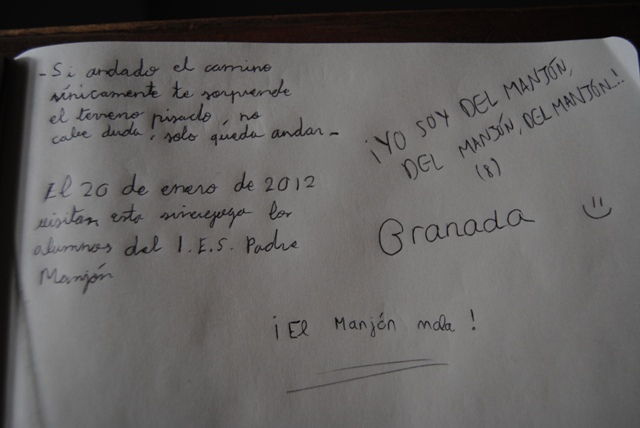 - Si andado el camino
sínicamente te sorprende
el terreno pisado, no
cabe duda, solo queda andar -
El 20 de enero de 2012
visitan esta sinagoga los
alumnos del I.E.S. Padre
Manjón
¡YO SOY DEL MANJÓN,
DEL MANJÓN, DEL MANJÓN..!
(8)
Granada
¡El Manjón mola!